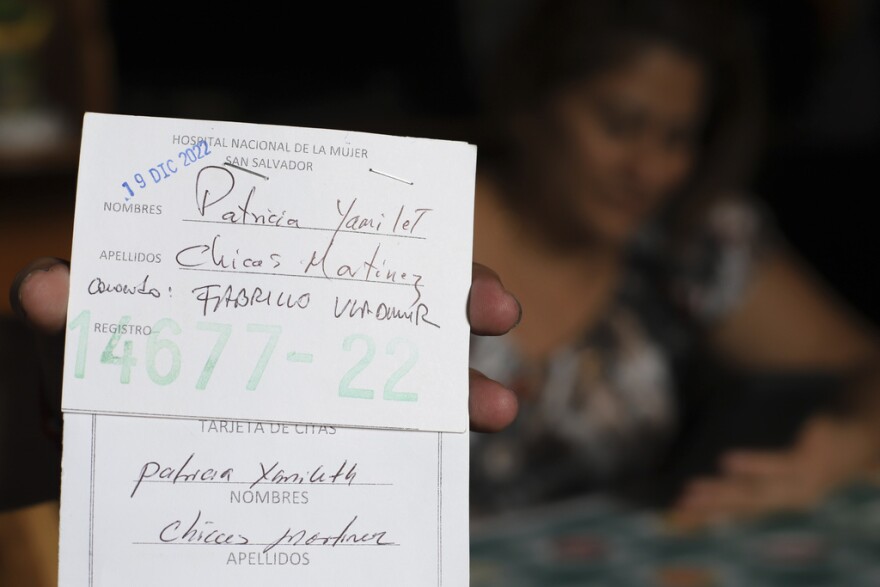 HOSPITAL NACIONAL DE LA MUJER
SAN SALVADOR
19 DIC 2022
NOMBRES Patricia Yamilet
APELLIDOS Chicas Martinez
conocido: FABRICIO VLADIMIR
REGISTRO
14677-22
TARJETA DE CITAS
Patricia Yamileth
NOMBRES
Chicas Martinez
APELLIDOS